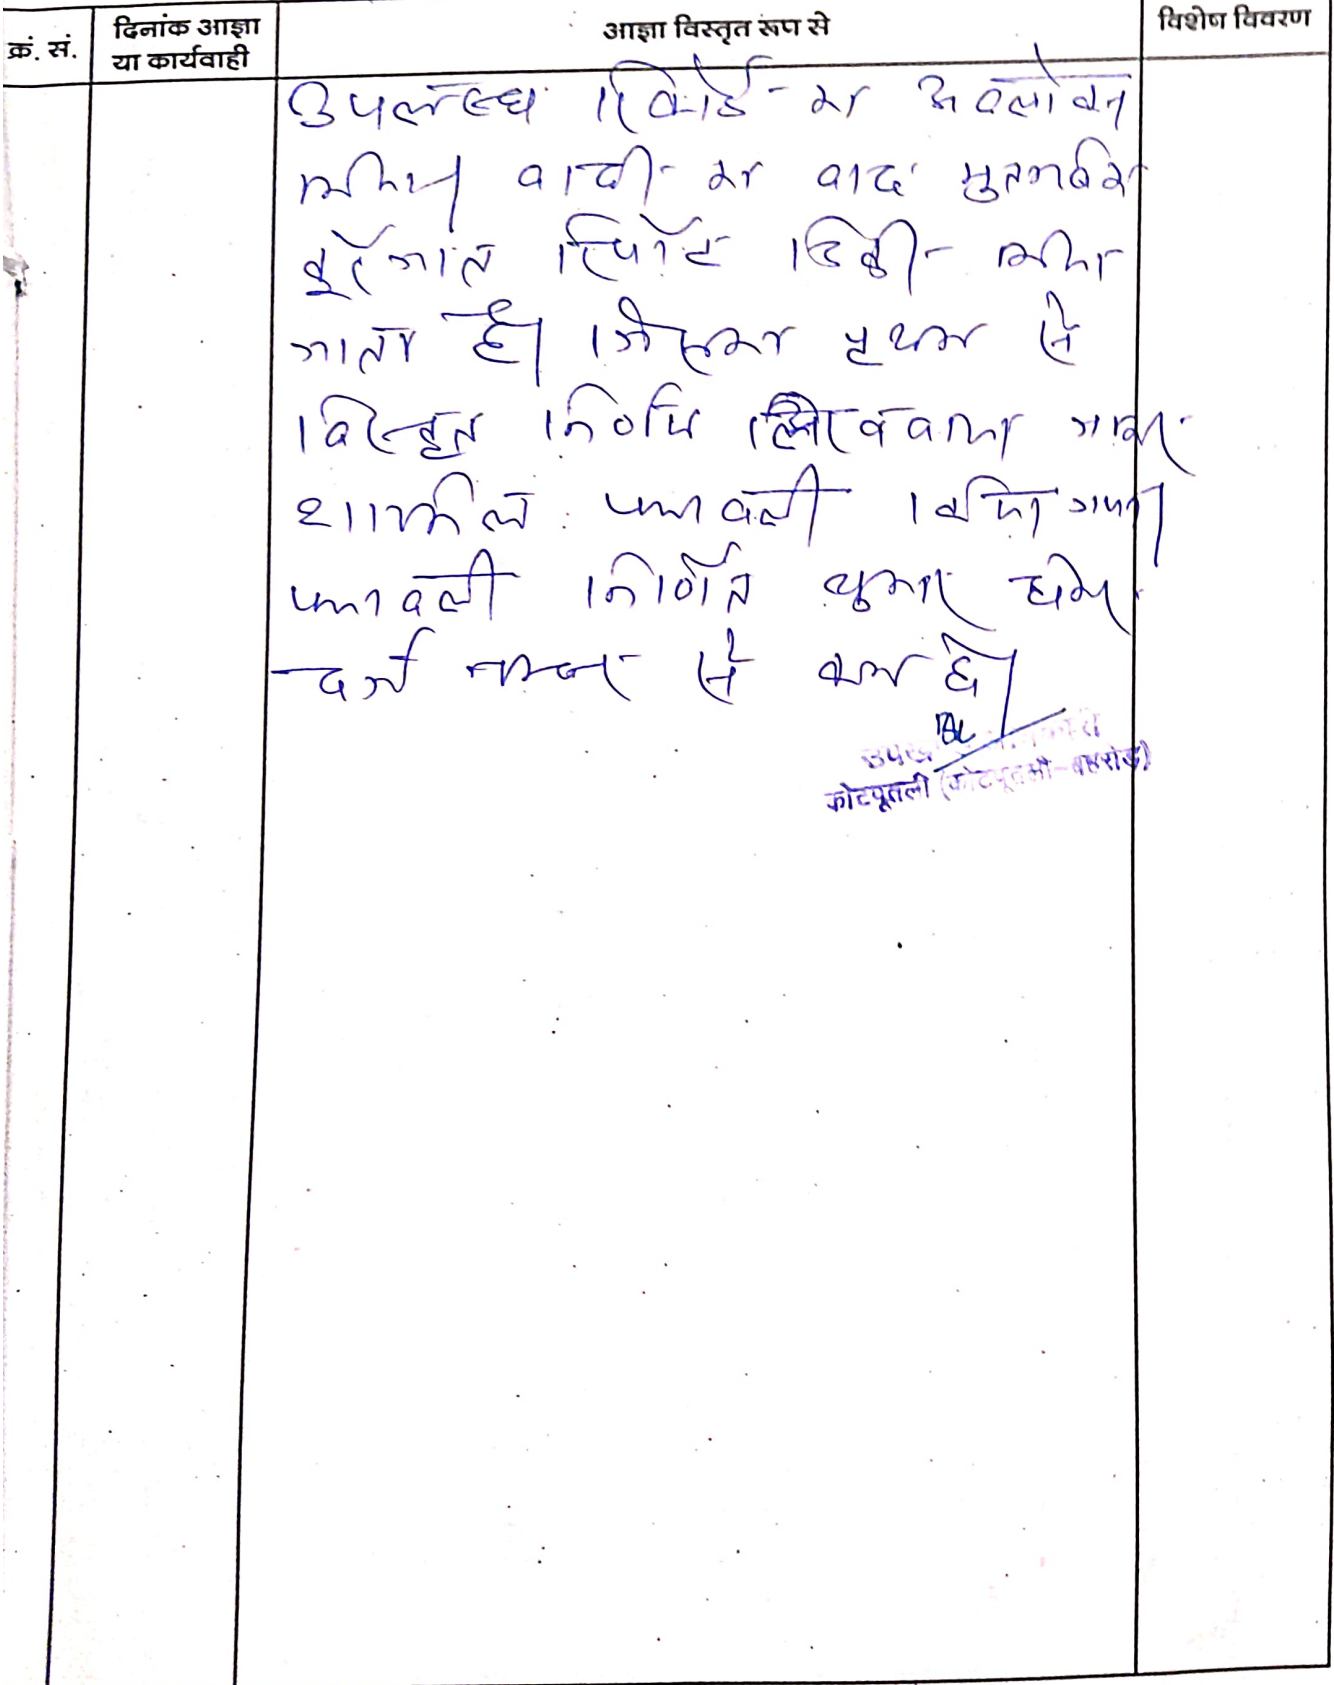 क्रं. सं.
दिनांक आज्ञा
या कार्यवाही
आज्ञा विस्तृत रूप से
विशेष विवरण
उपलब्ध रिकॉर्ड का अवलोकन
किया वादी का वाद मुताबिक
इस्तगात रिपोर्ट डिक्री किया
जाता है। जिसका पृथक से
विस्तृत निर्णय लिखवाया जाकर
शामिल पत्रावली किया गया।
पत्रावली निर्णित शुमार होकर
दर्ज नम्बर से कम हो।
कोटपूतली (कोटपूतली-बहरोड़)